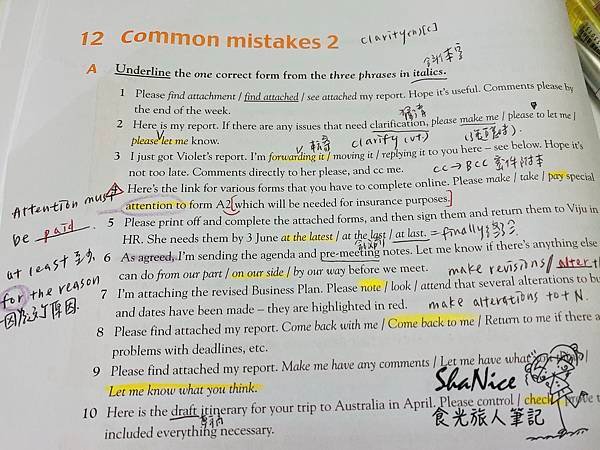 12 Common mistakes 2
clarity(n)[c]
A Underline the one correct form from the three phrases in italics.
1 Please find attachment / find attached / see attached my report. Hope it's useful. Comments please by
the end of the week.
2 Here is my report. If there are any issues that need clarification, please make me / please to let me /
please let me know.
clarify (vt)
3 I just got Violet's report. I'm forwarding it / moving it / replying it to you here – see below. Hope it's
not too late. Comments directly to her please, and cc me.
CC → BCC 密件附本
4 Here's the link for various forms that you have to complete online. Please make / take / pay special
attention to form A2 (which will be needed for insurance purposes.)
Attention must
be paid.
5 Please print off and complete the attached forms, and then sign them and return them to Viju in
HR. She needs them by 3 June at the latest / at the last / at last. = finally
at least 至少
6 As agreed, I'm sending the agenda and pre-meeting notes. Let me know if there's anything else
can do from our part / on our side / by our way before we meet.
for the reason
make revisions / alter
7 I'm attaching the revised Business Plan. Please note / look / attend that several alterations to bu
and dates have been made – they are highlighted in red.
make alterations to + N.
8 Please find attached my report. Come back with me / Come back to me / Return to me if there a
problems with deadlines, etc.
9 Please find attached my report. Make me have any comments / Let me have what
Let me know what you think.
ShaNice
食光旅人筆記
10 Here is the draft itinerary for your trip to Australia in April. Please control / check
included everything necessary.